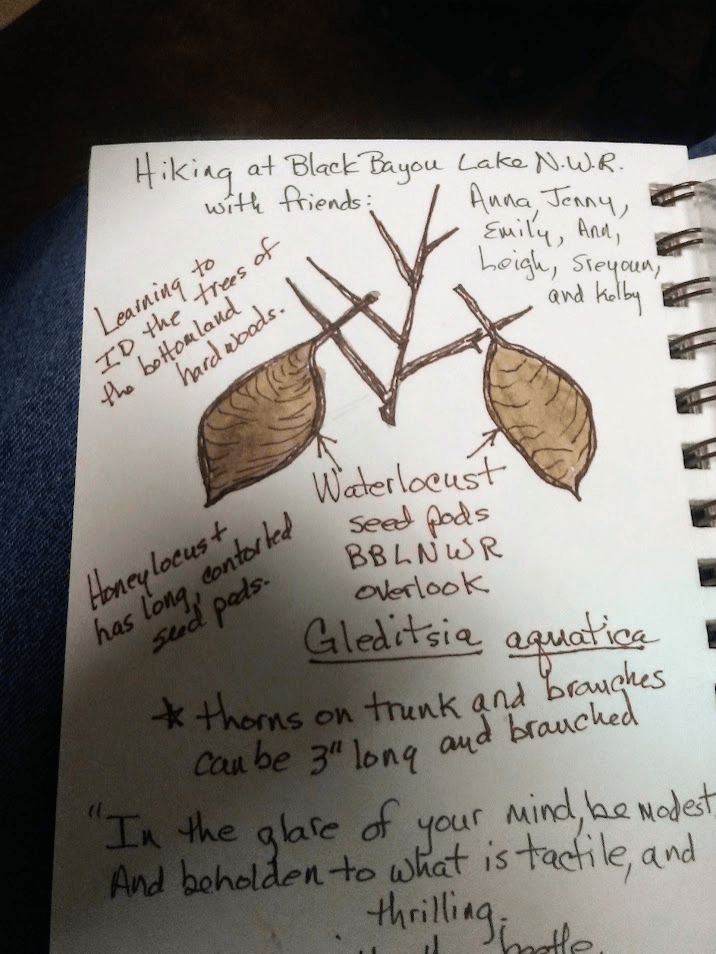 Hiking at Black Bayou Lake N.W.R.
with friends:
Anna, Jenny,
Emily, Ann,
Leigh, Sreyoun,
and Kelby
Learning to
ID the trees of
the bottomland
hardwoods.
Waterlocust
seed pods
BBLNWR
overlook
Honeylocust
has long, contorted
seed pods.
Gleditsia aquatica
* thorns on trunk and branches
can be 3" long and branched
"In the glare of your mind, be modest
And beholden to what is tactile, and
thrilling.
beetle